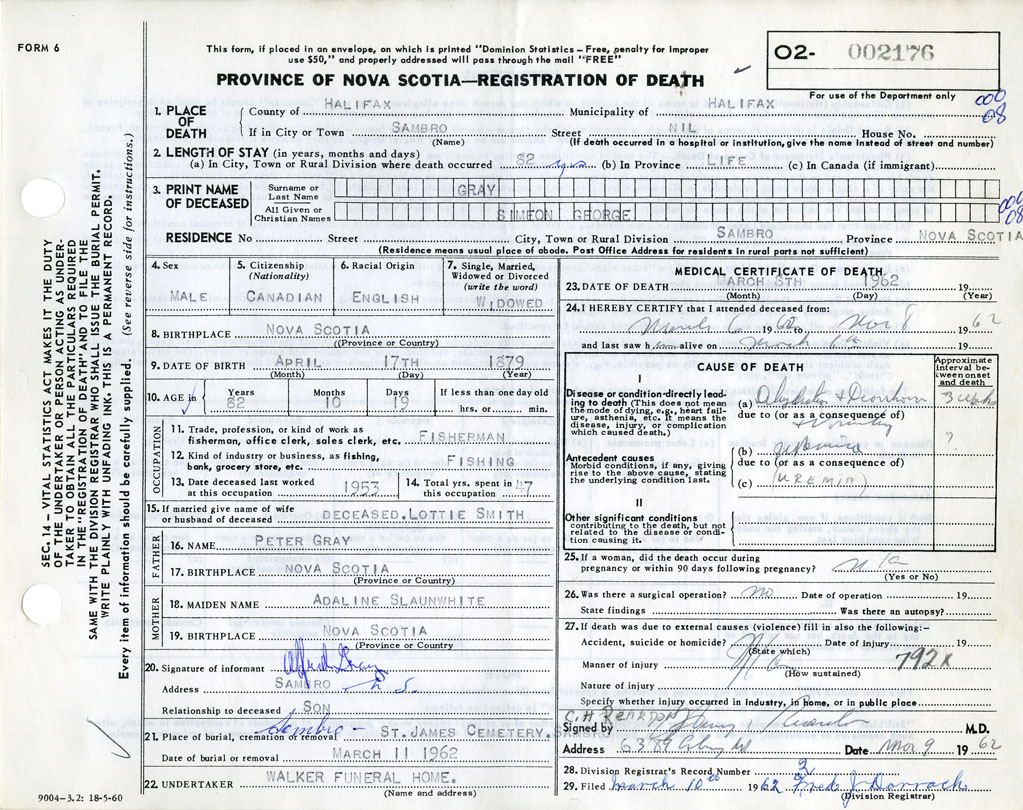 FORM 6
This form, if placed in an envelope, on which is printed "Dominion Statistics – Free, penalty for improper
use $50," and properly addressed will pass through the mail "FREE"
PROVINCE OF NOVA SCOTIA—REGISTRATION OF DEATH
02- 002176
For use of the Department only
009
08
1. PLACE OF DEATH
County of HALIFAX Municipality of HALIFAX
If in City or Town SAMBRO Street NIL House No.
(Name) (If death occurred in a hospital or institution, give the name instead of street and number)
2. LENGTH OF STAY (in years, months and days)
(a) In City, Town or Rural Division where death occurred 82 yrs. (b) In Province LIFE (c) In Canada (if immigrant)
3. PRINT NAME OF DECEASED
Surname or Last Name GRAY
All Given or Christian Names SIMEON GEORGE
009
08
RESIDENCE No Street City, Town or Rural Division SAMBRO Province NOVA SCOTIA
(Residence means usual place of abode. Post Office Address for residents in rural parts not sufficient)
4. Sex MALE
5. Citizenship (Nationality) CANADIAN
6. Racial Origin ENGLISH
7. Single, Married, Widowed or Divorced (write the word) WIDOWED
8. BIRTHPLACE NOVA SCOTIA
((Province or Country)
9. DATE OF BIRTH APRIL 17TH 1879
(Month) (Day) (Year)
10. AGE in Years Months Days If less than one day old
82 10 19 hrs. or min.
OCCUPATION
11. Trade, profession, or kind of work as
fisherman, office clerk, sales clerk, etc. FISHERMAN
12. Kind of industry or business, as fishing,
bank, grocery store, etc. FISHING
13. Date deceased last worked at this occupation 1953
14. Total yrs. spent in this occupation 47
15. If married give name of wife
or husband of deceased DECEASED.LOTTIE SMITH
FATHER
16. NAME PETER GRAY
17. BIRTHPLACE NOVA SCOTIA
(Province or Country)
MOTHER
18. MAIDEN NAME ADALINE SLAUNWHITE
19. BIRTHPLACE NOVA SCOTIA
(Province or Country)
20. Signature of informant Alfred Gray
Address SAMBRO N.S.
Relationship to deceased SON
21. Place of burial, cremation or removal Sambro – ST.JAMES CEMETERY.SAMBRO
Date of burial or removal MARCH 11 1962
22. UNDERTAKER WALKER FUNERAL HOME.
(Name and address)
9004–3.2: 18-5-60
MEDICAL CERTIFICATE OF DEATH
23. DATE OF DEATH MARCH 8TH 1962 19
(Month) (Day) (Year)
24. I HEREBY CERTIFY that I attended deceased from:
March 6 1962 to Mar 8 1962
and last saw him alive on March 6 19
CAUSE OF DEATH
Approximate interval between onset and death
I
Disease or condition directly leading to death (This does not mean
the mode of dying, e.g., heart failure, asthenia, etc. It means the
disease, injury, or complication
which caused death.)
(a) & 3 wks
due to (or as a consequence of)
Antecedent causes
Morbid conditions, if any, giving
rise to the above cause, stating
the underlying condition last.
(b) ?
due to (or as a consequence of)
(c) (UREMIA)
II
Other significant conditions
contributing to the death, but not
related to the disease or condition causing it.
25. If a woman, did the death occur during
pregnancy or within 90 days following pregnancy? n/a
(Yes or No)
26. Was there a surgical operation? no Date of operation 19
State findings Was there an autopsy?
27. If death was due to external causes (violence) fill in also the following:–
Accident, suicide or homicide? Date of injury 19
(State which)
792X
Manner of injury
(How sustained)
Nature of injury
Specify whether injury occurred in Industry, in home, or in public place
C.H REARDON
Signed by M.D.
Address 6389 Date Mar 9 1962
28. Division Registrar's Record Number 3
29. Filed March 10th 1962 Fred J Darrach
(Division Registrar)
SEC. 14 – VITAL STATISTICS ACT MAKES IT THE DUTY
OF THE UNDERTAKER OR PERSON ACTING AS UNDERTAKER TO OBTAIN ALL THE PARTICULARS REQUIRED
IN THE "REGISTRATION OF DEATH" AND TO FILE THE
SAME WITH THE DIVISION REGISTRAR WHO SHALL ISSUE THE BURIAL PERMIT.
WRITE PLAINLY WITH UNFADING INK. THIS IS A PERMANENT RECORD.
Every item of information should be carefully supplied. (See reverse side for instructions.)